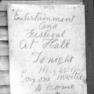 Entertainment
And
Festival
At Hall
Tonight
Every one Invited
to come